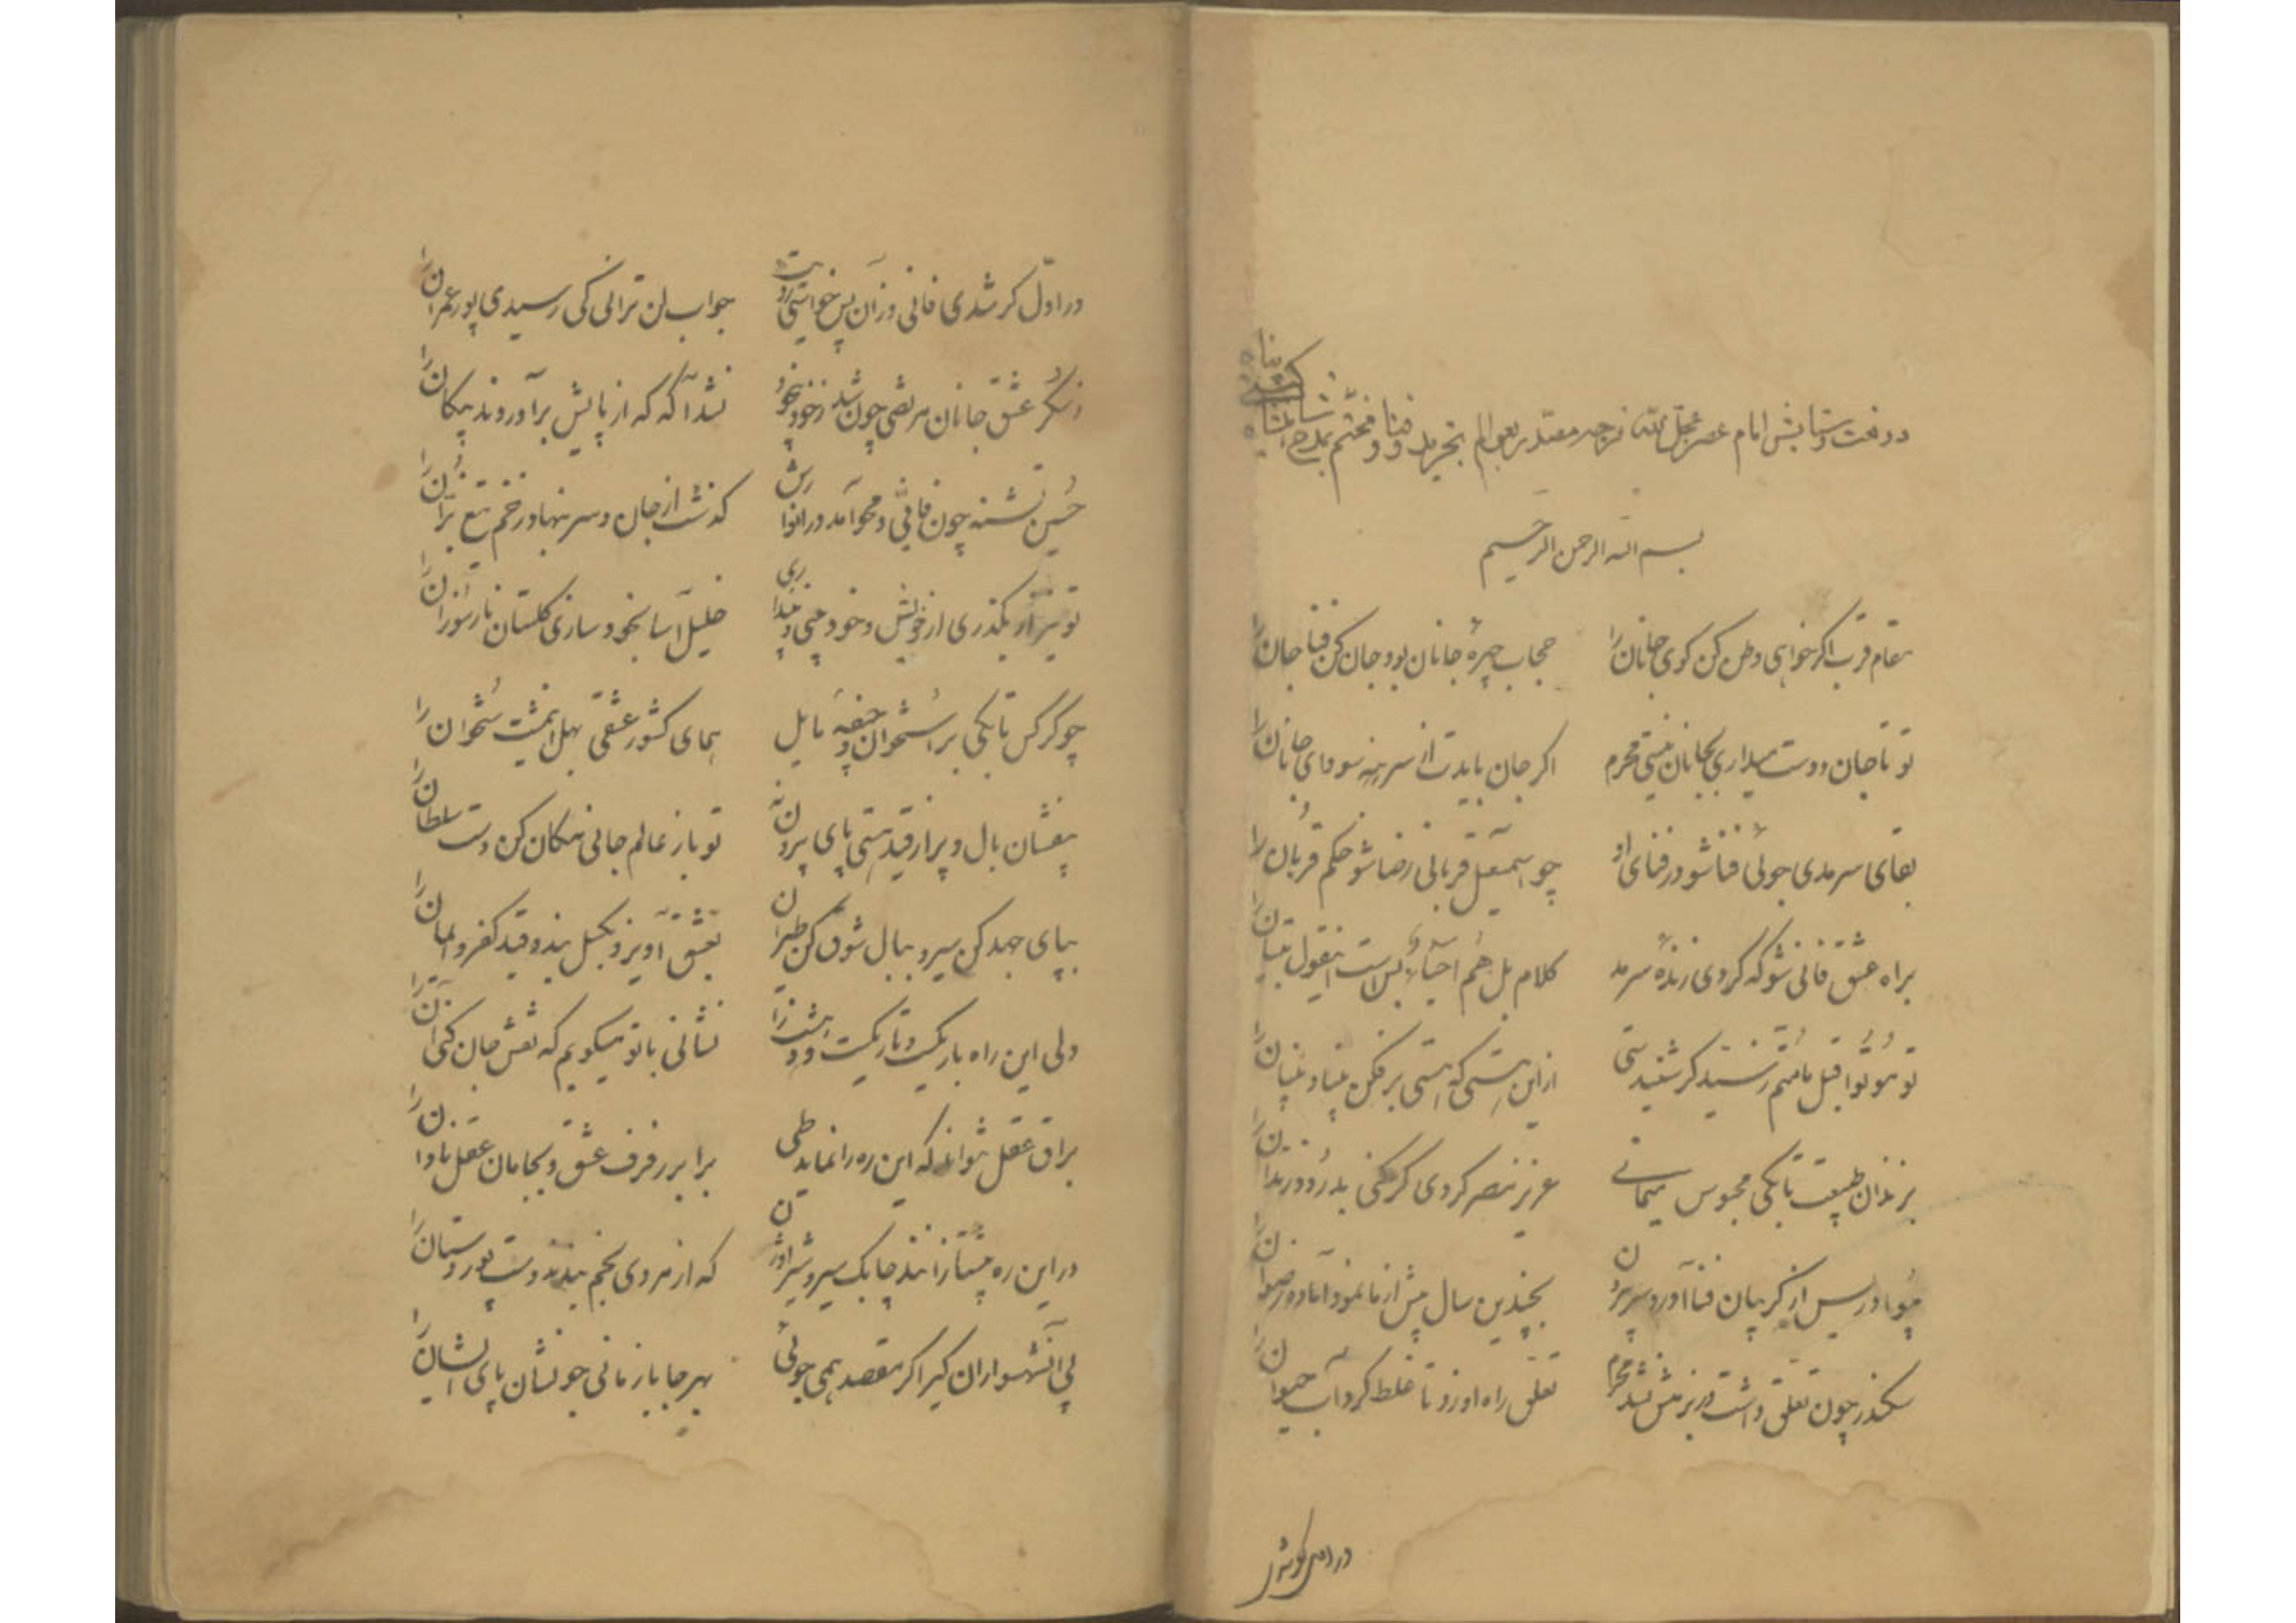 در نعت و ستایش امام عصر عجل الله فرجه
بسم الله الرحمن الرحیم
مقام قرب اکر خواهی وطن کن کوی جانان را    حجاب چهرهٔ جانان بود جان کن فنا جان را
تو تا جان دوست میداری بجانان نیستی محرم    اکر جان بایدت از سر بنه سودای جانان را
بقای سرمدی جوئی فنا شو در فنای او    چو اسمعیل قربانی رضا شو حکم قربان را
براه عشق فانی شو که کردی زندهٔ سرمد    کلام بل هم احیاء بس است اینقول تبیان را
تو موتوا قبل مامتم ز سید کر شنیدستی    از این هستی که هستی برفکن بنیاد بنیان را
بزندان طبیعت تا بکی محبوس میمانی    عزیز مصر کردی کر کنی بدرود زندان را
چو ادریس از کریبان فنا آورد سر بیرون    بچندین سال پیش از ما نمود آماده رضوان را
سکندر چون تعلق داشت در بزمش نشد محرم    تعلق راه او زد تا غلط کرد آب حیوان را
در اول کر شدی
در اول کر شدی فانی وزان پس خواستی رویت    جواب لن ترانی کی رسیدی پور عمران را
ز سکر عشق جانان مرتضی چون شد ز خود بیخود    نشد آکه که از پایش برآوردند پیکان را
حسین تشنه چون فانی و محو آمد در انوارش    کذشت از جان و سر بنهاد زخم تیغ بران را
تو نیز ار بکذری از خویش و خود بینی و پنداری    خلیل آسا بخود سازی کلستان نار سوزان را
چو کرکس تا بکی بر استخوان و جیفهٔ مایل    همای کشور عشقی بهل این مشت ستخوان را
بیفشان بال و پر از قید هستی پای بیرون نه    تو باز عالم جانی مکان کن دست سلطان را
بپای جهد کن سیر و ببال شوق کن طیران    بعشق آویز و بکسل بند و قید کفر و ایمان را
ولی این راه باریکست و تاریکست و دزد    نشانی با تو میکویم که نفس جان کنی آن را
براق عقل نتواند که این ره را نماید طی    برابر رفرف عشق و بجا مان عقل نادان را
در این ره پیشتازانند چابک سیر و شیر اوژن    که از مردی بخم بندند دست پور دستان را
پی آن شهسواران کیر اکر مقصد همی جوئی    بهر جا باز مانی جو نشان پای ایشان را